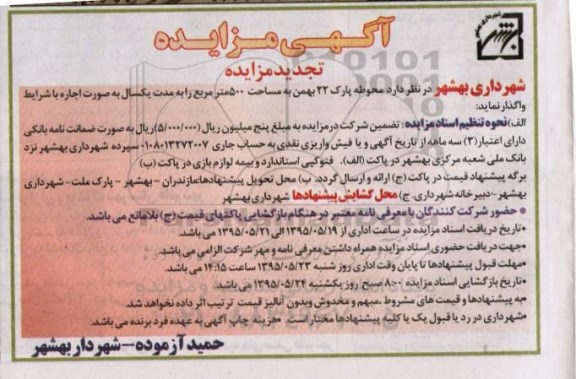 آگهی مزایده
تجدید مزایده
شهرداری بهشهر در نظر دارد محوطه پارک ۲۲ بهمن به مساحت ۵۰۰ متر مربع را به مدت یکسال به صورت اجاره با شرایط
واگذار نماید:
الف) نحوه تنظیم اسناد مزایده: تضمین شرکت در مزایده به مبلغ پنج میلیون ریال (۵/۰۰۰/۰۰۰) ریال به صورت ضمانت نامه بانکی
دارای اعتبار (۳) سه ماهه از تاریخ آگهی و یا فیش واریزی نقدی به حساب جاری ۰۱۰۸۰۱۳۲۷۲۰۰۷ سپرده شهرداری بهشهر نزد
بانک ملی شعبه مرکزی بهشهر در پاکت (الف). فتوکپی استاندارد و بیمه لوازم بازی در پاکت (ب)
برگه پیشنهاد قیمت در پاکت (ج) ارائه و ارسال گردد. ب) محل تحویل پیشنهادها: مازندران - بهشهر - پارک ملت - شهرداری
بهشهر - دبیرخانه شهرداری. ج) محل گشایش پیشنهادها شهرداری بهشهر
* حضور شرکت کنندگان با معرفی نامه معتبر در هنگام بازگشایی پاکتهای قیمت (ج) بلامانع می باشد.
•تاریخ دریافت اسناد مزایده در ساعت اداری از ۱۳۹۵/۰۵/۱۹ الی ۱۳۹۵/۰۵/۲۱ می باشد.
•جهت دریافت حضوری اسناد مزایده همراه داشتن معرفی نامه و مهر شرکت الزامی می باشد.
•مهلت قبول پیشنهادها تا پایان وقت اداری روز شنبه ۱۳۹۵/۰۵/۲۳ ساعت ۱۴:۱۵ می باشد.
•تاریخ بازگشایی اسناد مزایده ۸:۰۰ صبح روز یکشنبه ۱۳۹۵/۰۵/۲۴ می باشد.
•به پیشنهادها و قیمت های مشروط، مبهم و مخدوش وبدون آنالیز قیمت ترتیب اثر داده نخواهد شد.
•شهرداری در رد یا قبول یک یا کلیه پیشنهادها مختار است. •هزینه چاپ آگهی به عهده فرد برنده می باشد.
حمید آزموده - شهردار بهشهر